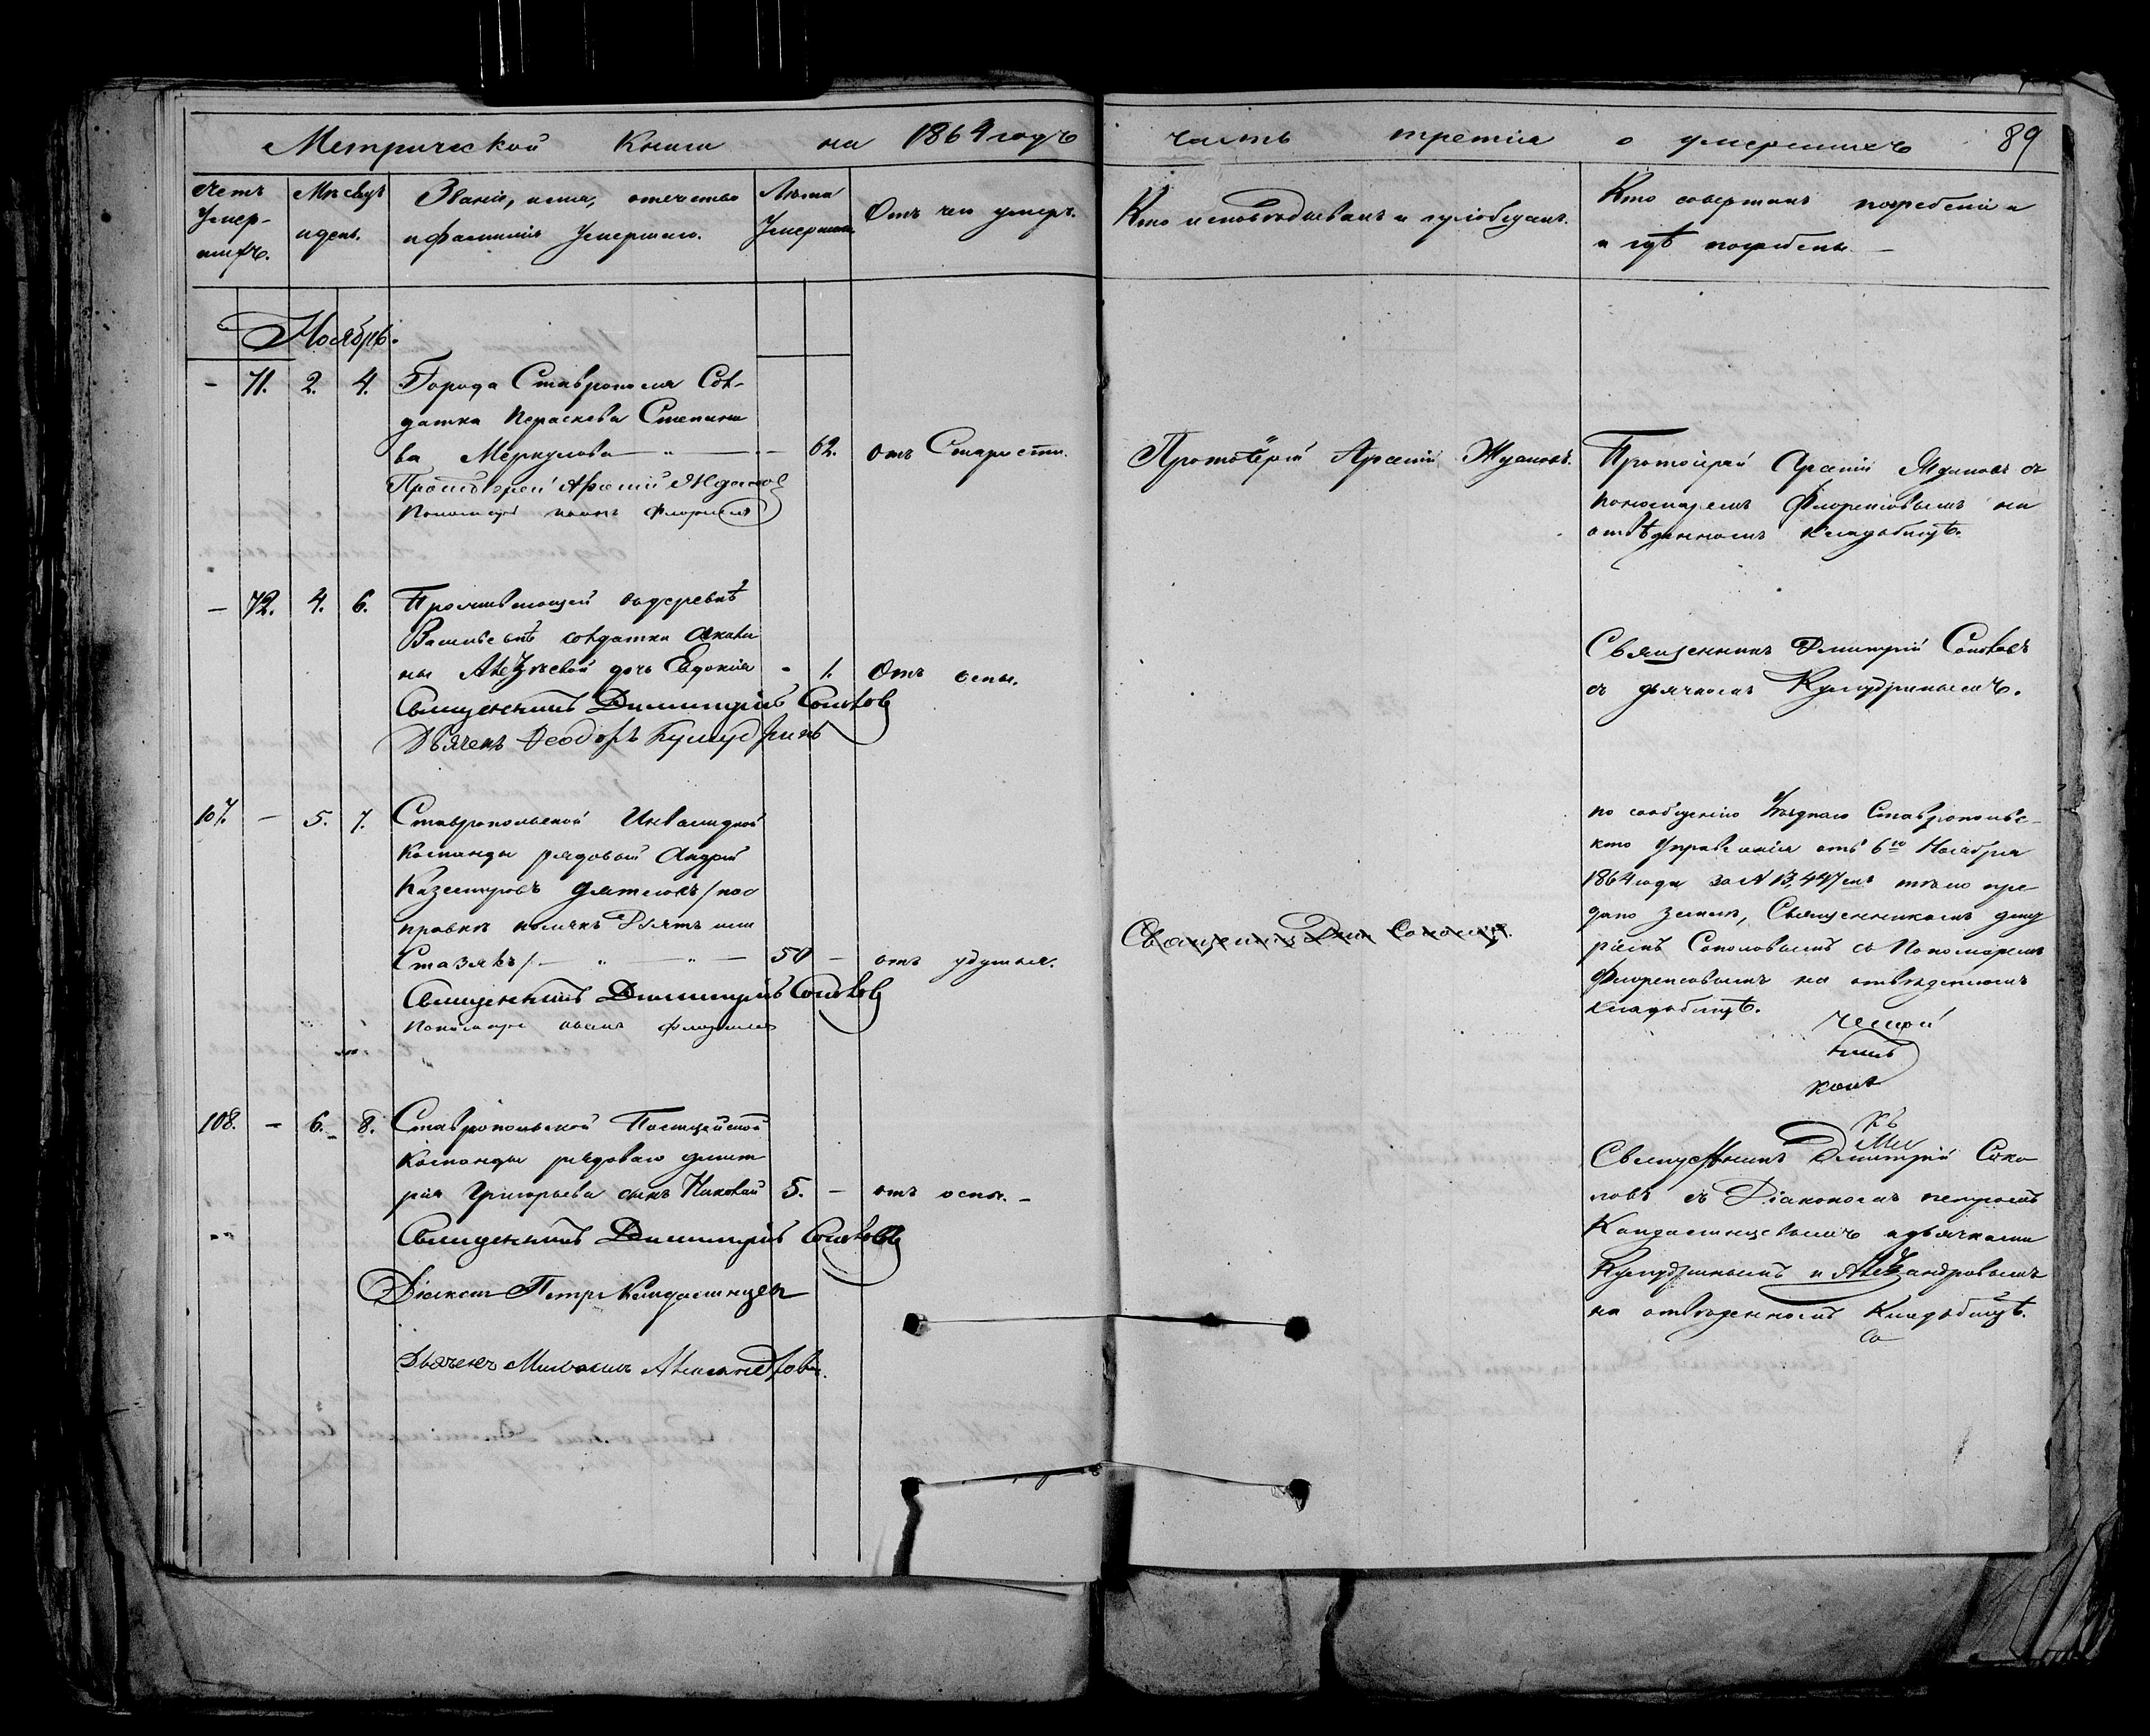 Метрической Книги на 1864 годъ
часть третія о умершихъ 89
Счетъ Умер-шихъ.
Мѣсяцъ и день.
Званіе, имя, отечество и фамилія Умершаго.
Лѣта Умершаго
Отъ чего умеръ.
Кто исповѣдывалъ и пріобщалъ.
Кто совершалъ погребеніе и гдѣ погребены.
Ноябрь.
— 71. 2. 4. Города Ставрополя Сол-
датка Параскева Степано
ва Меркулова — 62. отъ Старости.
Протоіерей Арсеній Ждановъ
Пономарь
Протоіерей Арсеній Ждановъ.
Протоіерей Арсеній Ждановъ съ
пономаремъ Флоренсовымъ на
отвѣденномъ кладбищѣ.
— 72. 4. 6. Проживающей въ деревнѣ
Васильевкѣ солдатки Акили
ны Алексѣевой дочь Евдокія - 1. Отъ оспы.
Священникъ Димитрій Соколов
Дьячекъ Ѳеодоръ Кумудринъ
Священникъ Дмитрій Соколовъ
съ дьячкомъ Кумудринымъ.
107. — 5. 7. Ставропольской Инвалидной
Команды рядовой Андрей
Казимировъ
правкѣ
50 — отъ удушья.
Священникъ Димитрій Соколов
Пономарь
Священникъ Дим Соколовъ.
по сообщенію Уѣзднаго Ставропольс-
каго Управленія отъ 6го Ноября
1864 года за N 13,447 мъ тѣло пре
дано землѣ, Священникомъ Дмит
ріемъ Соколовымъ съ Пономаремъ
Флоренсовымъ на отвѣденномъ
кладбищѣ.
108. — 6. 8. Ставропольской Полицейской
Команды рядоваго Дмит
рія Григорьева сынъ Николай 5. — отъ оспы. —
Священникъ Димитрій Соколовъ
Діаконъ Петръ Кандалинцев
Дьячекъ Михаилъ Александровъ.
Священникъ Дмитрій Соко
ловъ съ Діакономъ Петромъ
Кандалинцевымъ и дьячками
Кумудринымъ и Александровымъ
на отвѣденномъ Кладбищѣ.